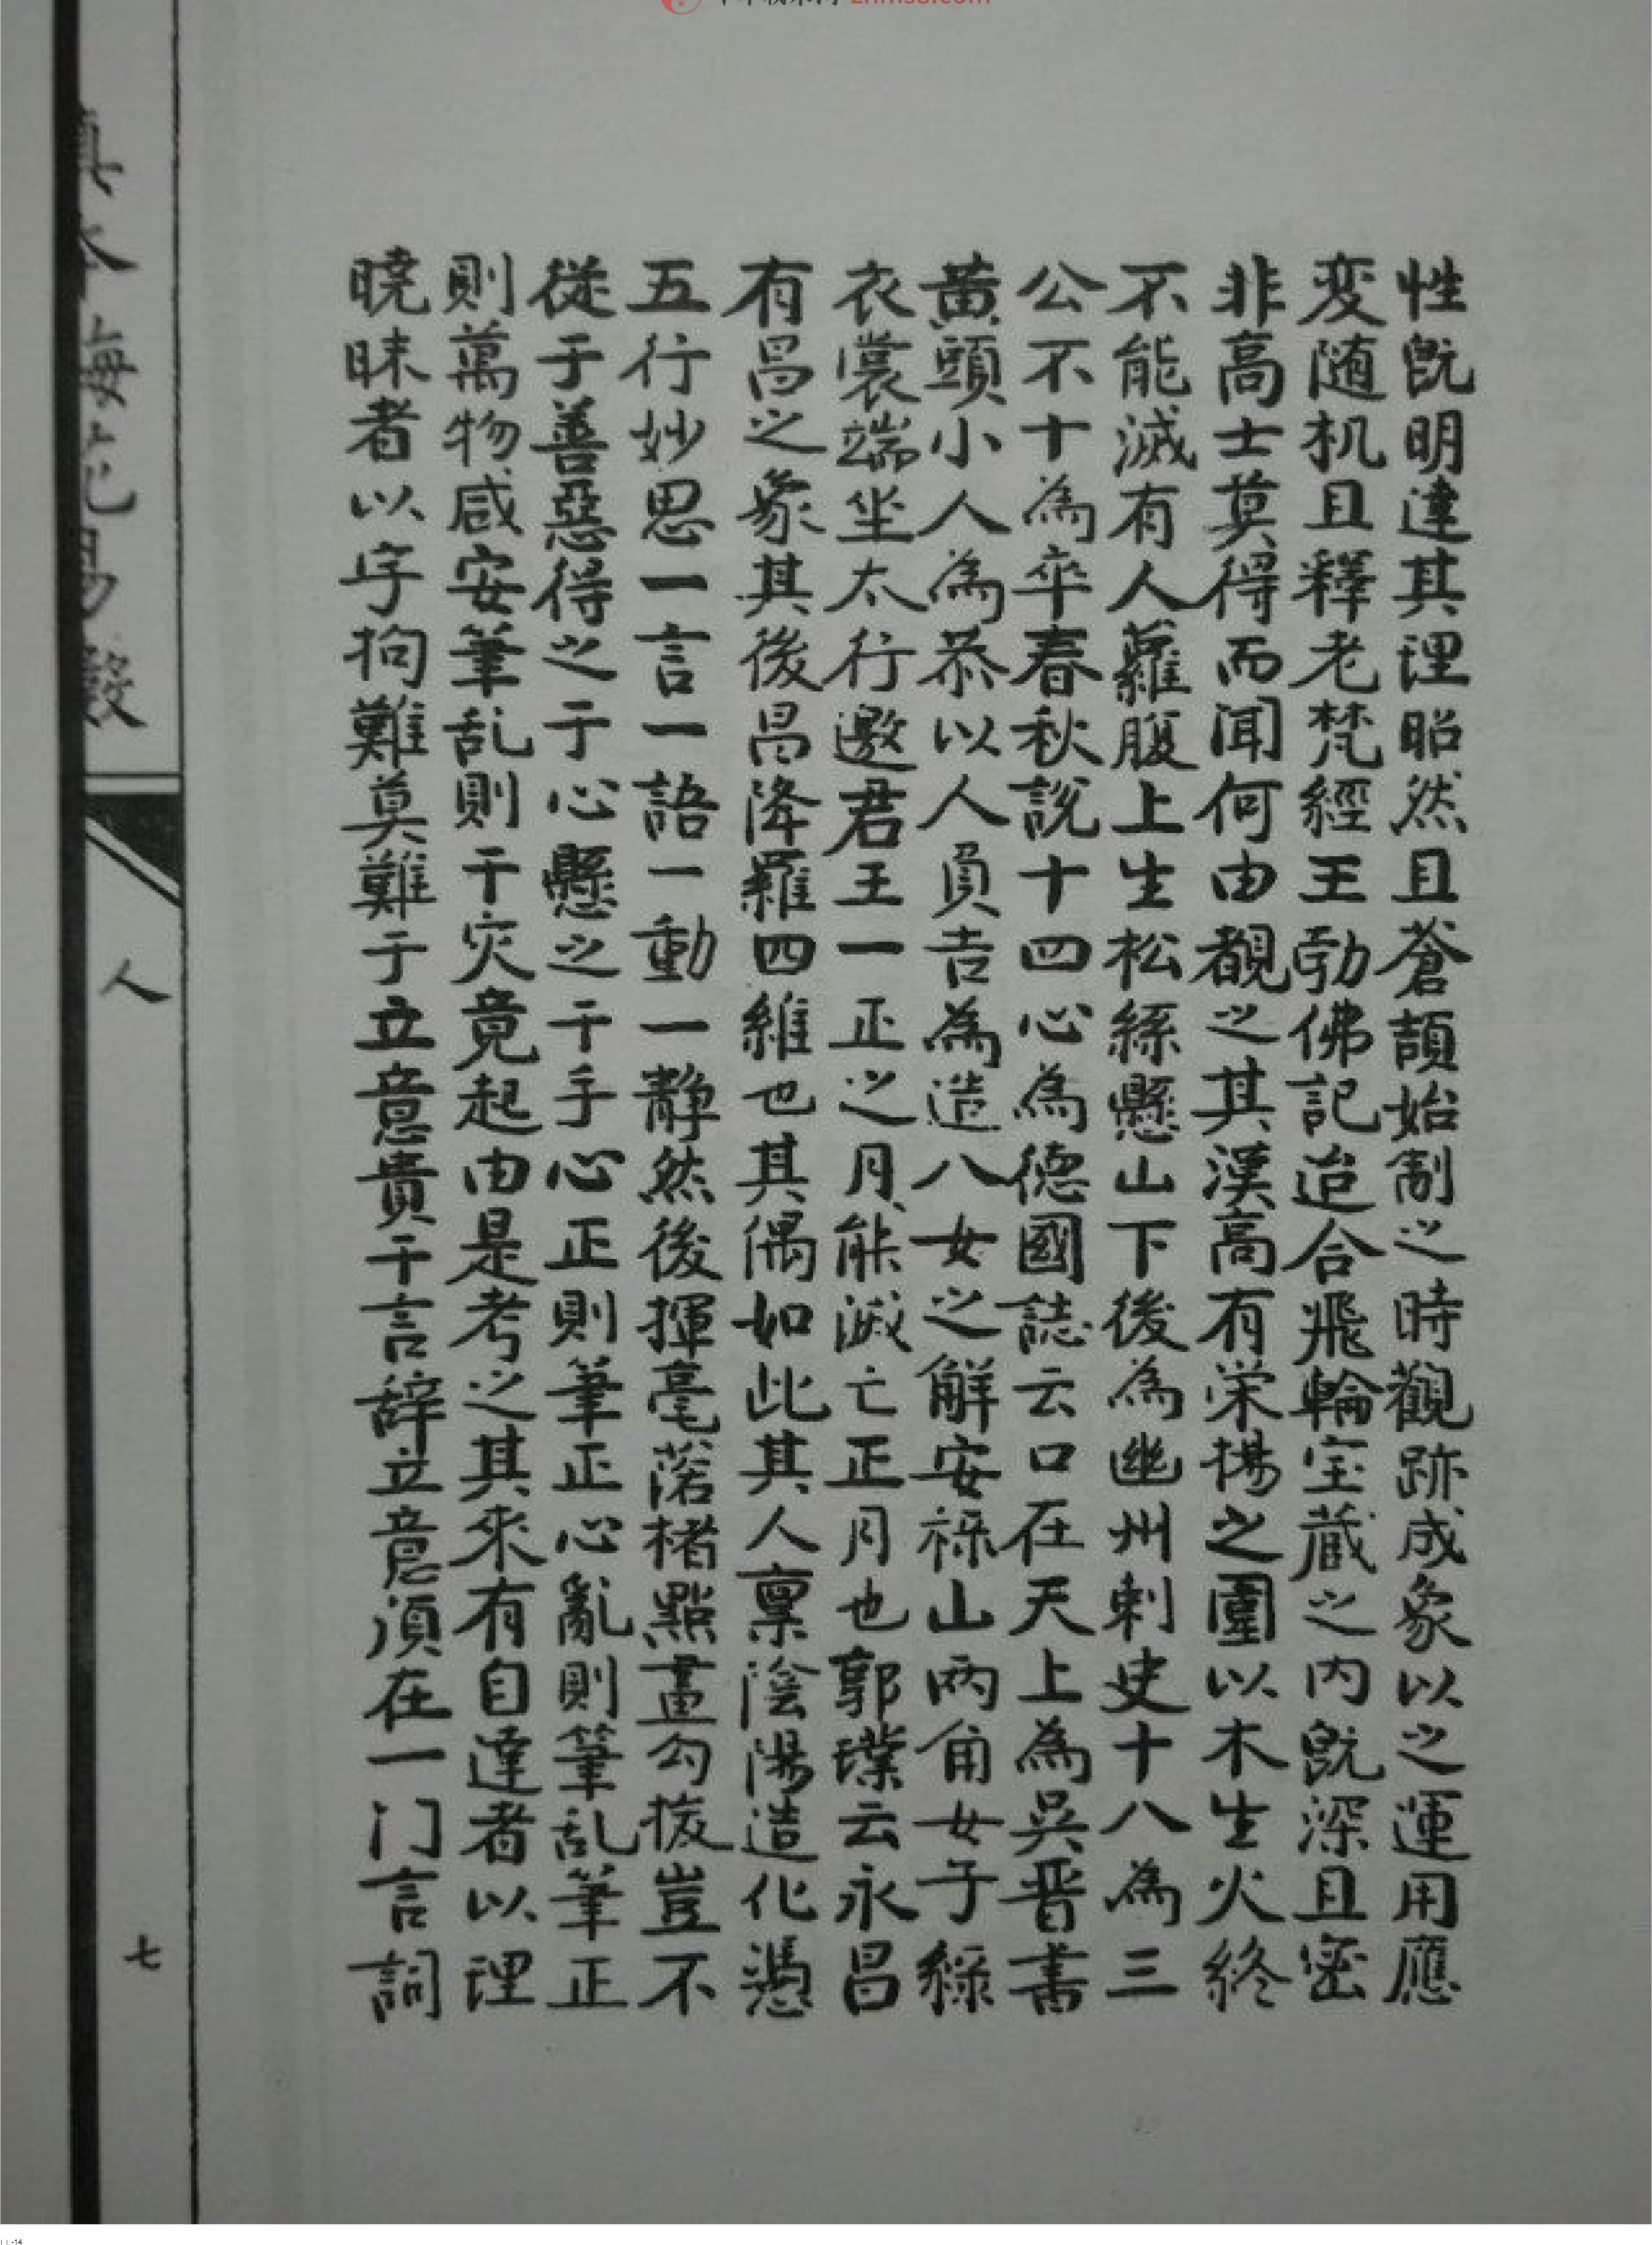 性既明達其理昭然且蒼頡始制之時觀跡成象以之運用應
変随机且釋老梵經王勃佛記迨合飛輪宝蔵之内既深且密
非高士莫得而聞何由覩之其漢高有栄揚之圍以木生火終
不能滅有人蘿腹上生松絲懸山下後為幽州刺史十八為三
公不十為卒春秋說十四心為德國誌云口在天上為吳晋書
黃頭小人為恭以人負吉為造八女之解安祿山兩角女子綠
衣裳端坐太行邀君王一正之月能滅亡正月也郭璞云永昌
有昌之象其後昌降羅四維也其偶如此其人稟陰陽造化憑
五行妙思一言一語一動一靜然後揮毫落楮點畫勾拔豈不
從于善惡得之于心懸之于手心正則筆正心亂則筆乱筆正
則萬物咸安筆乱則干灾竟起由是考之其來有自達者以理
曉昧者以字拘難莫難于立意貴于言辞立意須在一门言詞
人
七